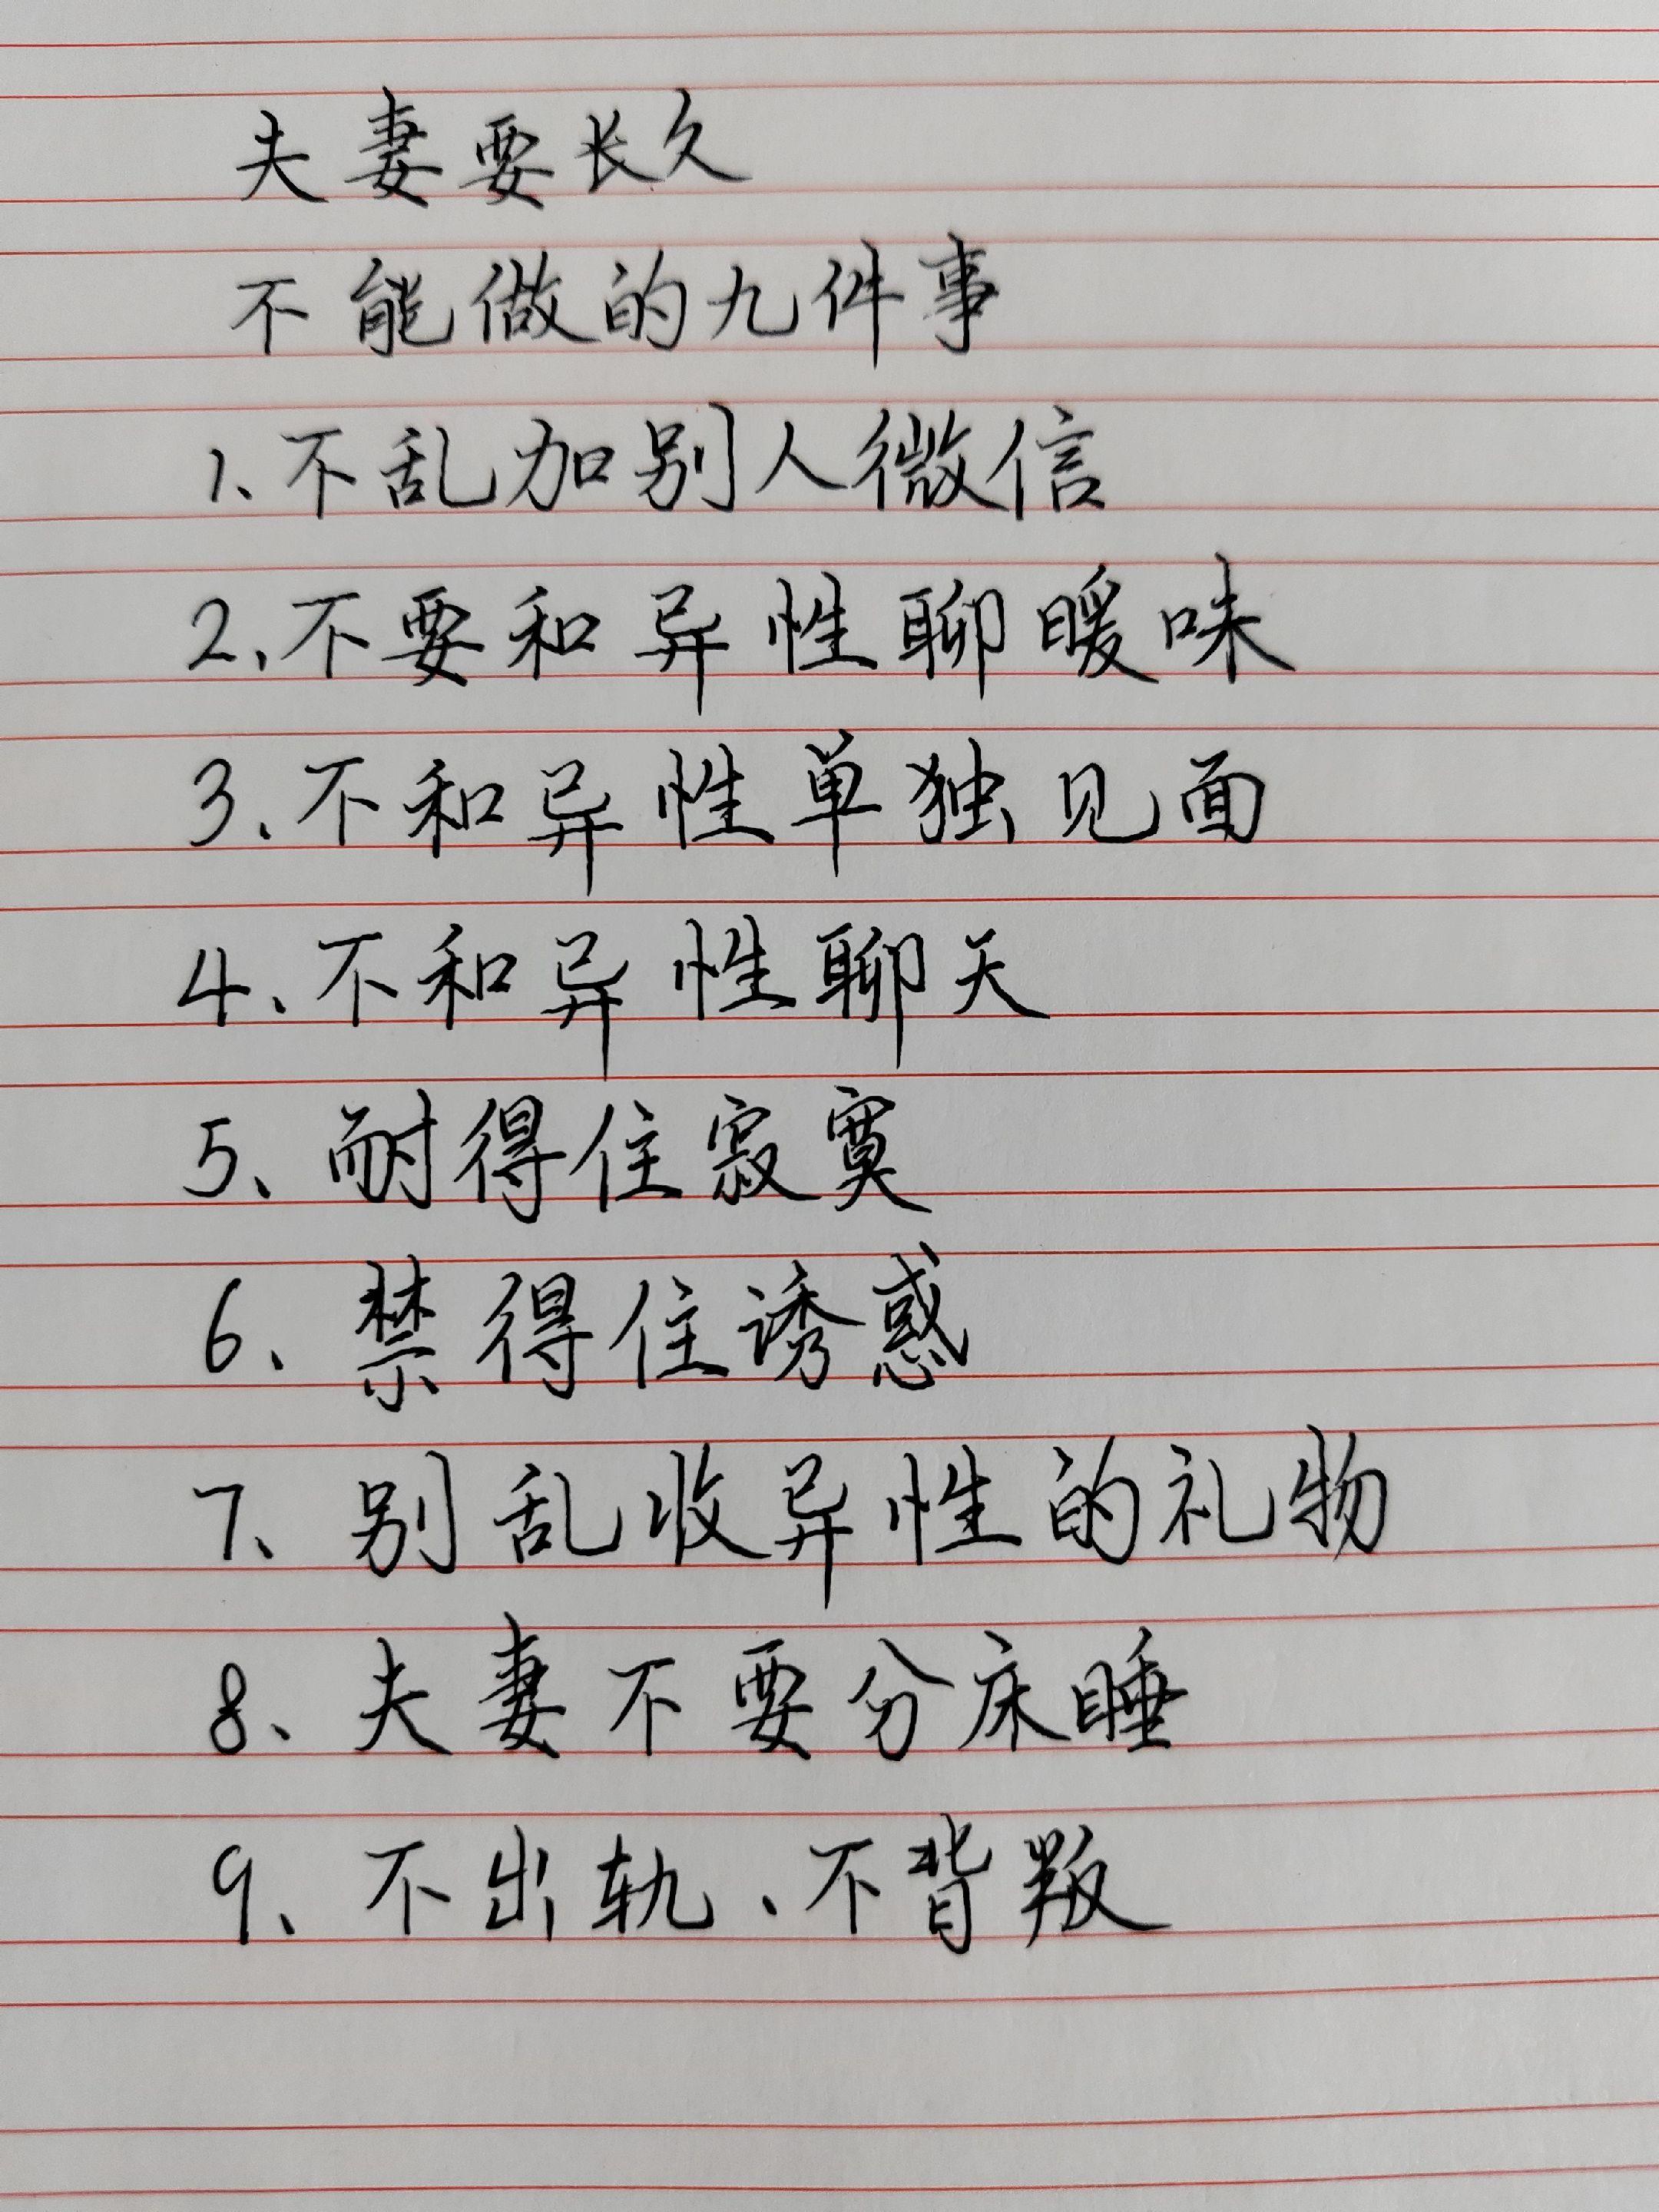 夫妻要长久
不能做的九件事
1、不乱加别人微信
2、不要和异性聊暖味
3、不和异性单独见面
4、不和异性聊天
5、耐得住寂寞
6、禁得住诱惑
7、别乱收异性的礼物
8、夫妻不要分床睡
9、不出轨、不背叛